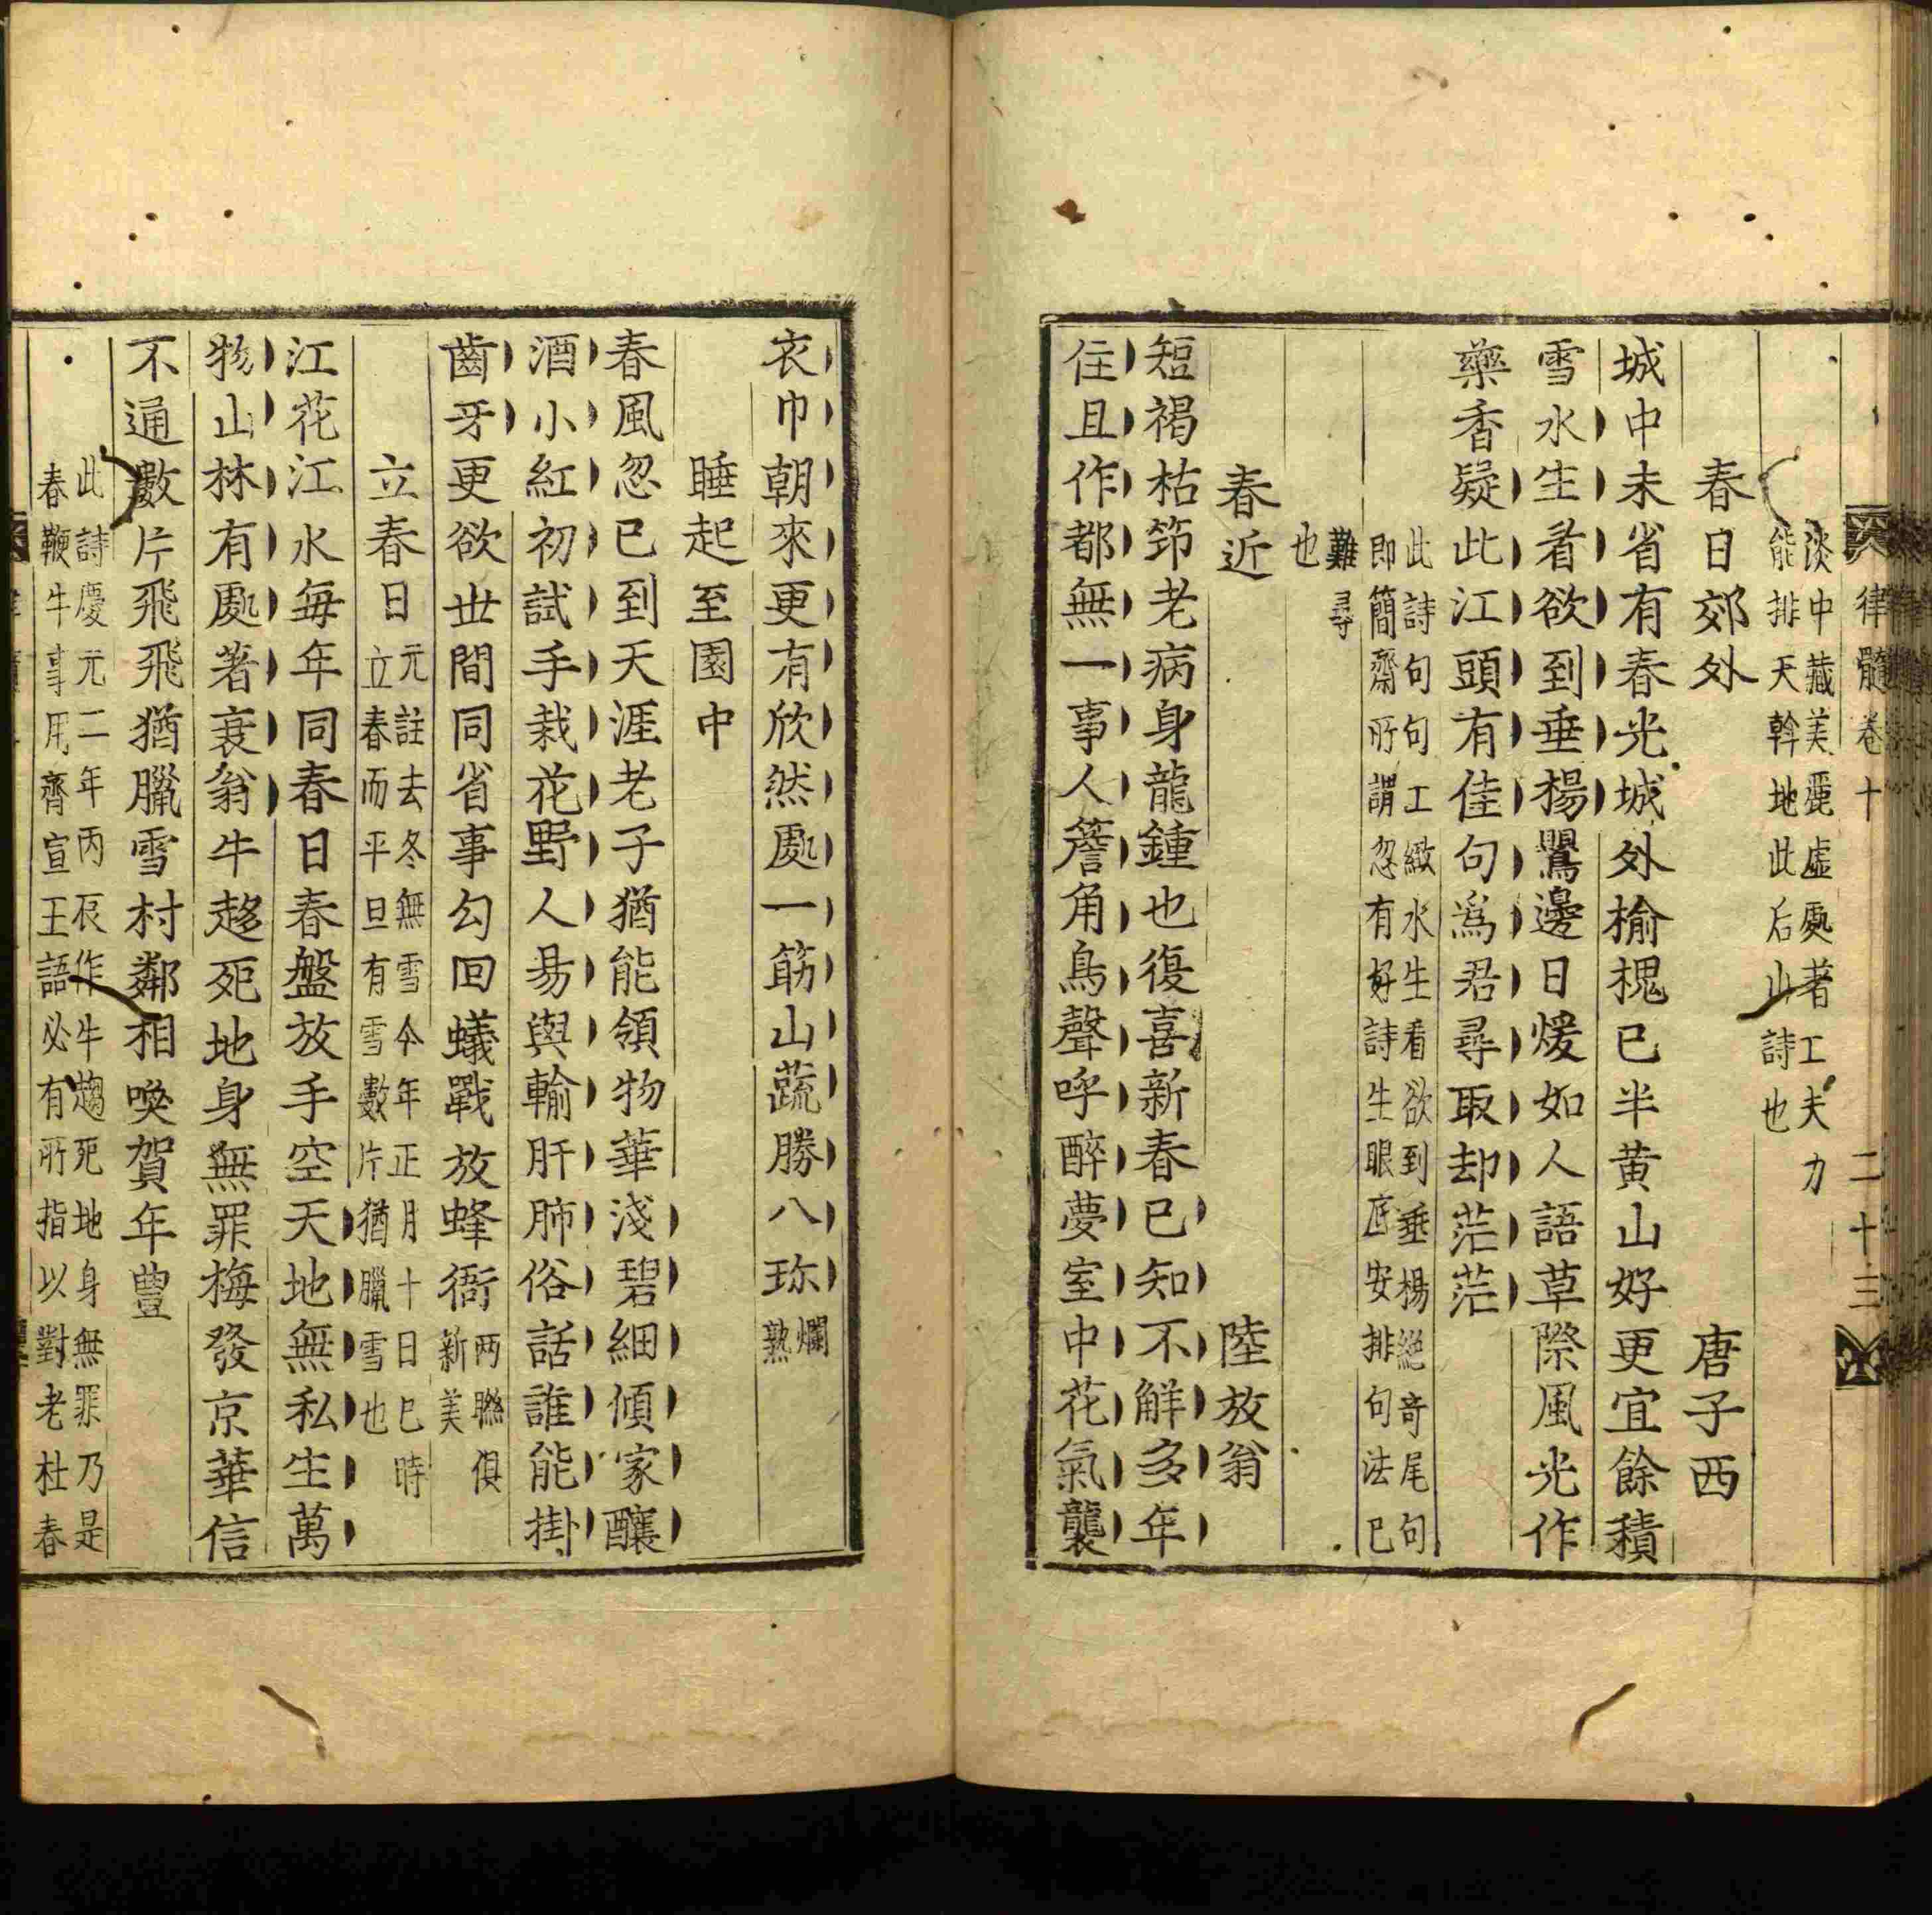 律髓卷十 二十三
淡中藏美麗虛處著工夫力
能排天斡地此后山詩也
春日郊外 唐子西
城中未省有春光城外榆槐已半黄山好更宜餘積
雪水生看欲到垂楊鸎邊日煖如人語草際風光作
藥香疑此江頭有佳句爲君尋取却茫茫
此詩句句工緻水生看欲到垂楊絕奇尾句
即簡齋所謂忽有好詩生眼底安排句法已
難尋
也
春近 陸放翁
短褐枯笻老病身龍鍾也復喜新春已知不解多年
住且作都無一事人簷角鳥聲呼醉夢室中花氣襲
衣巾朝來更有欣然處一筯山蔬勝八珎爛
熟
睡起至園中
春風忽已到天涯老子猶能領物華淺碧細傾家釀
酒小紅初試手栽花野人昜與輸肝肺俗話誰能掛
齒牙更欲世間同省事勾回蟻戰放蜂衙两聮俱
新美
立春日元註去冬無雪今年正月十日巳時
立春而平旦有雪數片猶臘雪也
江花江水每年同春日春盤放手空天地無私生萬
物山林有處著衰翁牛趍死地身無罪梅發京華信
不通數片飛飛猶臘雪村鄰相喚賀年豐
此詩慶元二年丙辰作牛趨死地身無罪乃是
春鞭牛事用齊宣王語必有所指以對老杜春